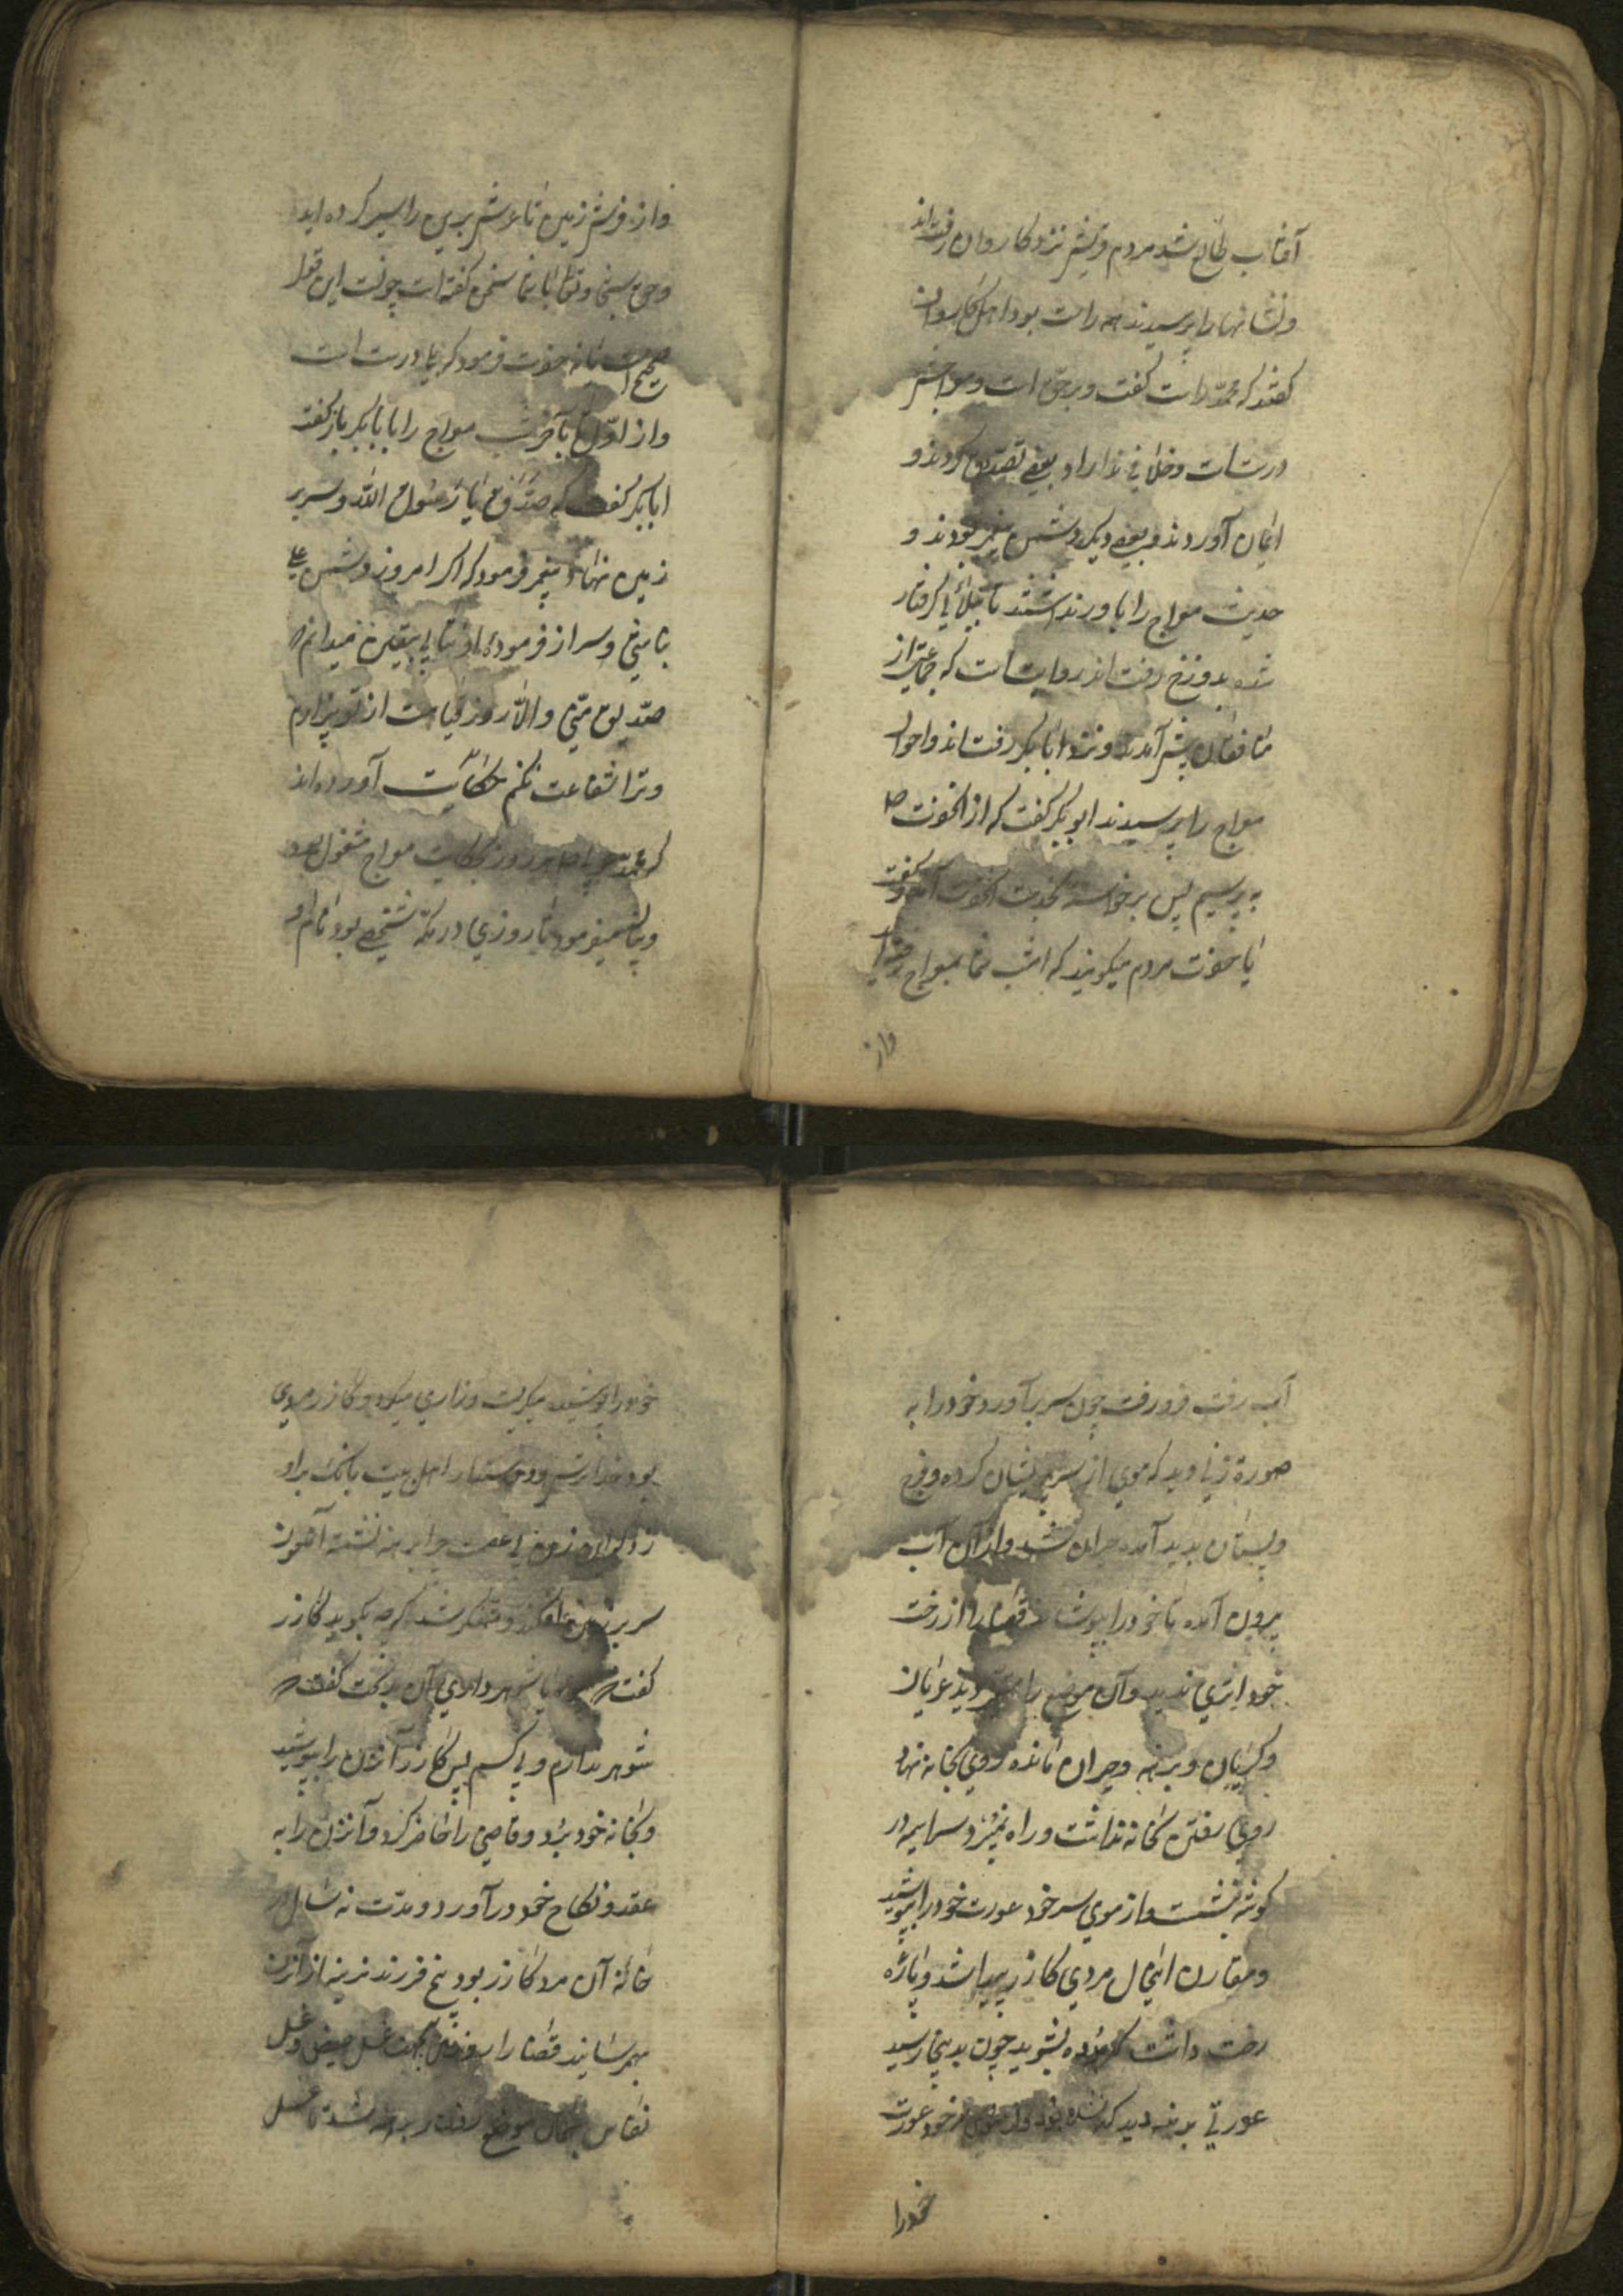 آفتاب طالع شد مردم قریش نزد کاروان رفته اند
و نشانها را پرسیدند همه راست بود اهل کاروان
گفتند که محمد راست گفت و برحق است و معراجش
درست است و خلافی ندارد و بعضی تصدیق کردند و
ایمان آوردند و بعضی دیکر دشمن پیغمبر بودند و
حدیث معراج را باور نداشتند تا ببلائی گرفتار
شده بدوزخ رفته اند روایت است که جماعتی از
منافقان پیش آمدند و نزد ابابکر رفته اند و احوال
معراج را پرسیدند ابوبکر گفت که از آنحضرت ص
به پرسیم پس برخاسته بخدمت آنحضرت آمد و گفت
یا حضرت مردم میکویند که امشب شما بمعراج رفته اید
واز
و از فرش زمین تا عرش برین را سیر کرده اید
و حق سبحانه و تعالی با شما سخن گفته است چونست این قول
صحیح است یا نه حضرت فرمود که بلی درست است
و از اول تا بآخر شب معراج را با ابابکر باز گفت
ابابکر گفت که صدق یا رسول الله و سر بر
زمین نهاد پیغمبر فرمود که اکر امروز دشمن علی
نباشی و سر از فرموده او نتابی بیقین میدانم که
صدیق منی و الا روز قیامت از تو بیزارم
و ترا شفاعت نکنم حکایت آورده اند
که محمد هر روز بحکایت معراج مشغول بود
و بیان میفرمود تا روزی در مکه شخصی بود نام او
آب رفت فرو رفت چون سر برآورد خود را به
صورة زنی دید که موی از سر پریشان کرده و فرج
و پستان بدید آمده حیران شد و از آن آب
بیرون آمده تا خود را بپوشد قطعا از رخت
خود اثری ندید و آن موضع را دید عریان
و کریان و برهنه و حیران مانده روی بخانه نهاد
روی رفتن بخانه نداشت و راه نمیبرد سراسیمه در
کوشه بنشست و از موی سر خود عورت خود را بپوشید
و مقارن اینحال مردی کازر پیدا شد و پاره
رخت داشت که بشوید چون بدینجا رسید
عورتی برهنه دید که نشسته بود و از موی سر خود عورت
خود را
خود را پوشیده میکریست و زاری میکرد و کازر مردی
بود خداترس و دوستدار اهل بیت بانک بر او
زد که ای زن بی عصمت چرا برهنه نشسته آنزن
سر بزیر افکند و متفکر شد که چه بکوید کازر
گفت که شوهر داری آن بدبخت گفت که
شوهر ندارم و بی کسم پس کازر آنزن را بپوشید
و بخانه خود برد و قاضی را حاضر کرد و آنزن را به
عقد و نکاح خود درآورد و مدت نه سال در
خانه آن مرد کازر بود پنج فرزند نرینه از آنزن
بهم رسانید قضا را روزی بجهت غسل حیض و غسل
نفاس بهمان موضع رفت و برهنه شد تا غسل